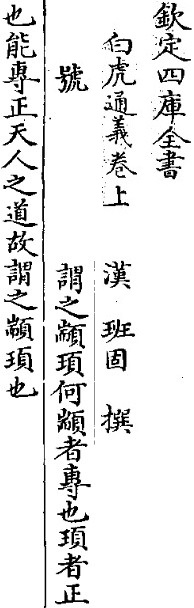 欽定四庫全書
白虎通義卷上
漢班固撰
號
謂之顓頊何顓者專也頊者正
也能專正天人之道故謂之顓頊也